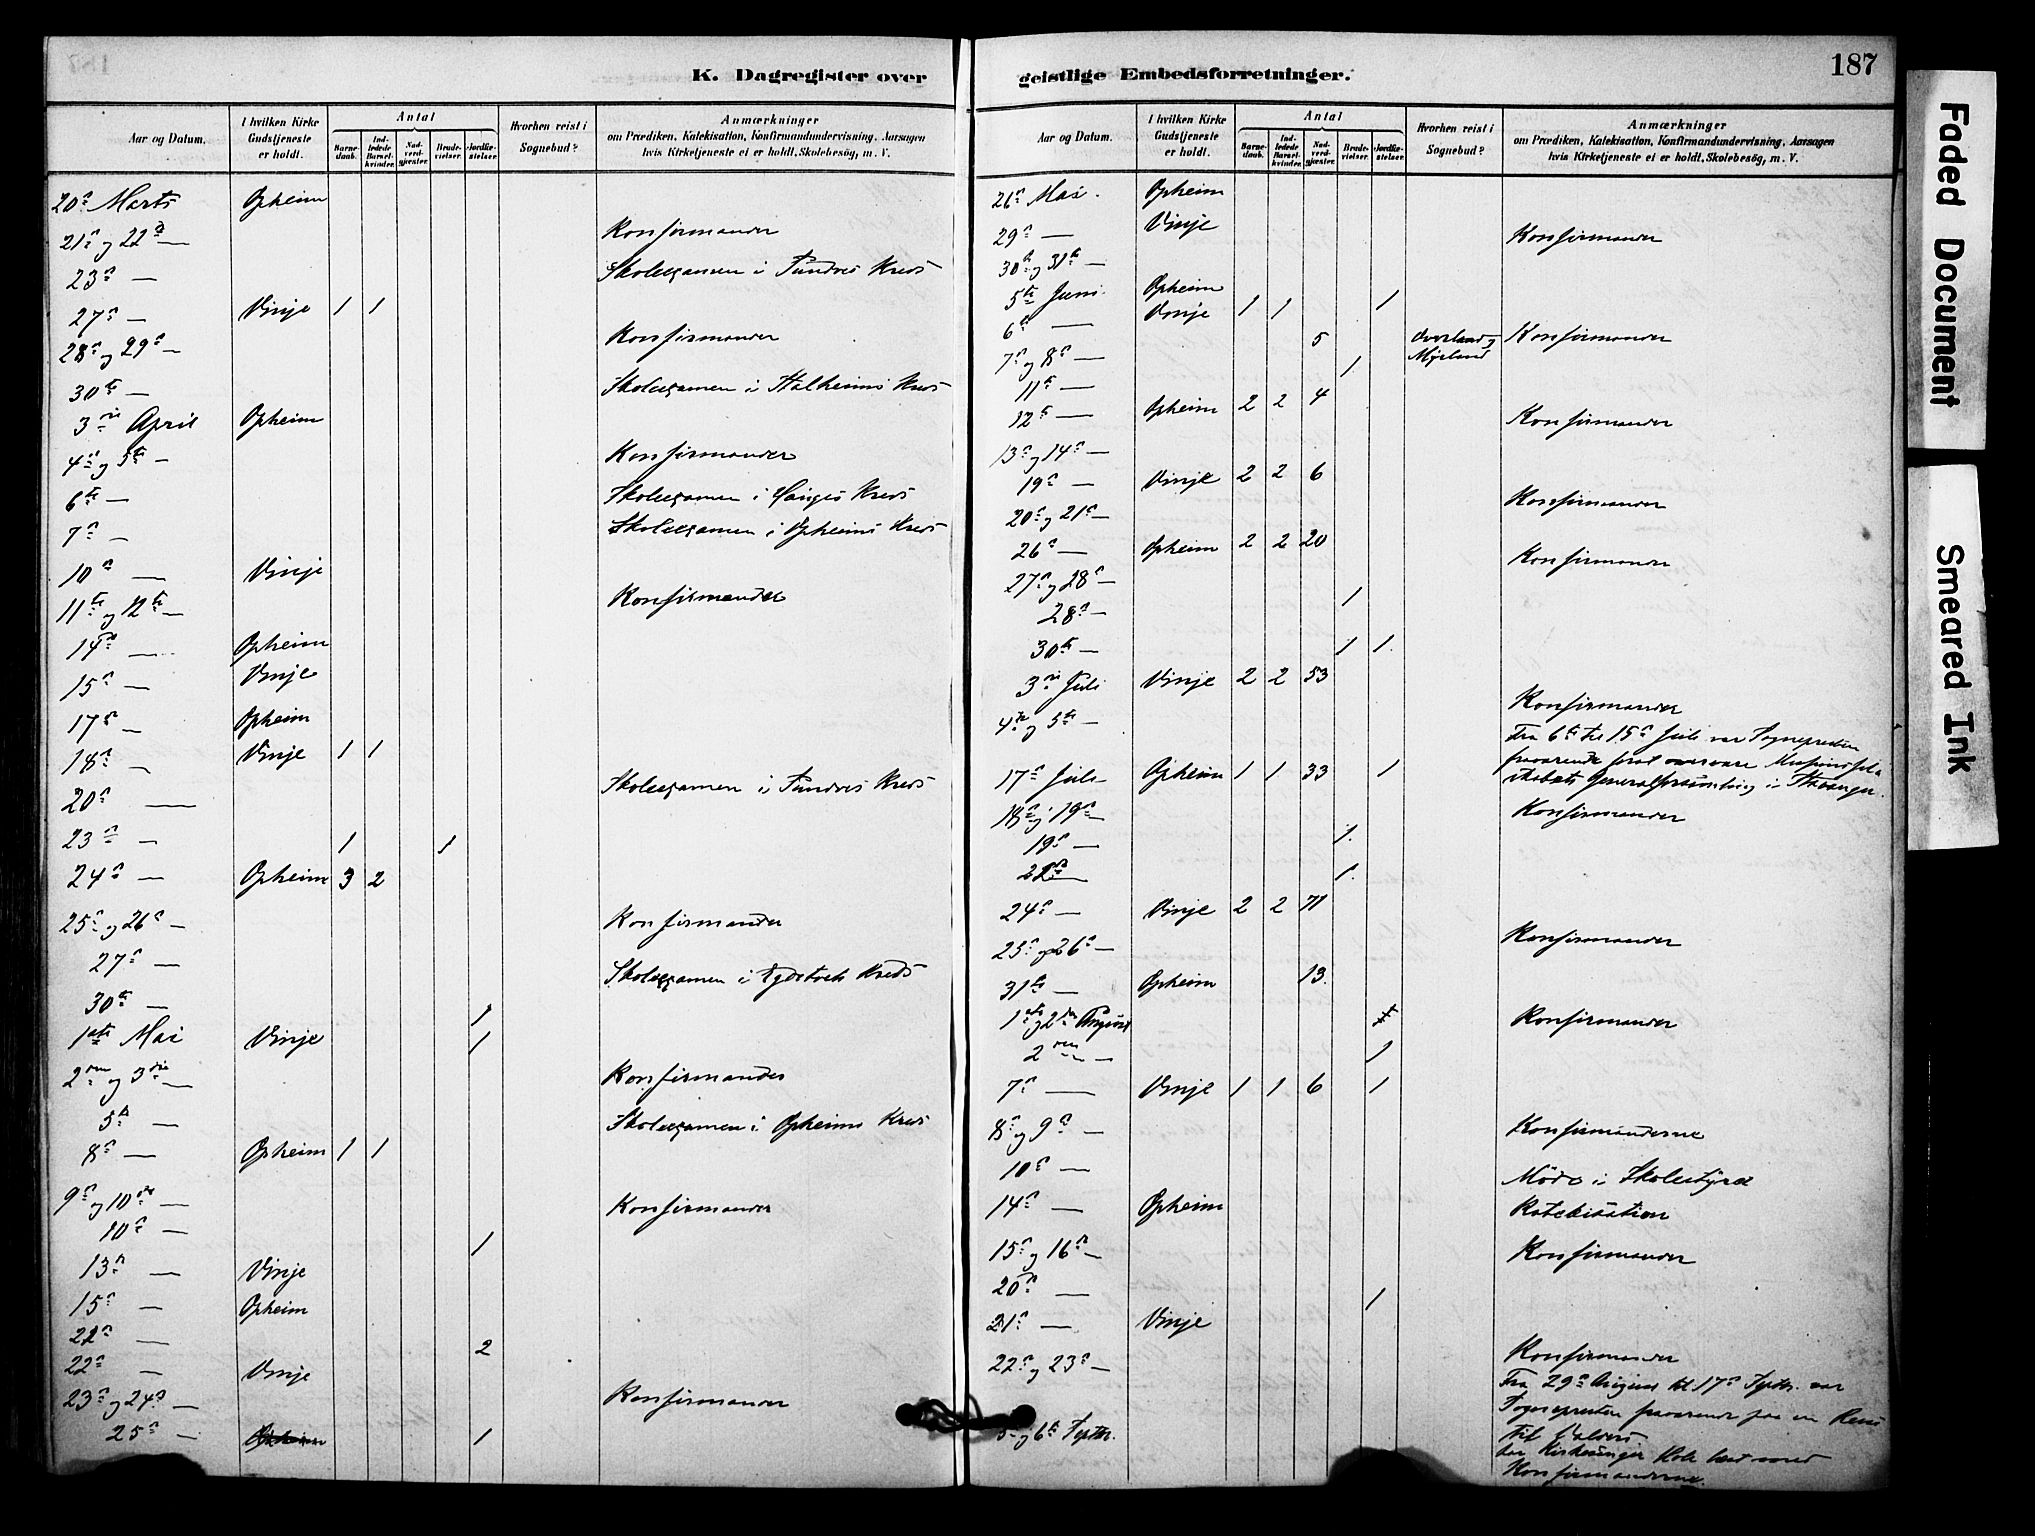 187
K. Dagregister over
geistlige Embedsforretninger.
Aar og Datum. I hvilken Kirke Gudstjeneste er holdt. Antal Barnedaab. Indledede Barselkvinder. Nadverdgjæster. Brudevielser. Jordfæstelser. Hvorhen reist i Sognebud? Anmærkninger om Prædiken, Katekisation, Konfirmandundervisning, Aarsagen hvis Kirketjeneste ei er holdt, Skolebesög, m. V.
20de Marts Opheim
21de og 22de — Konfirmander
23de — Skoleexamen i Tundres Kreds
27de — Vinje 1 1
28de og 29de — Konfirmander
30te — Skoleexamen i Stalheims Kreds
3die April Opheim
4de og 5te — Konfirmander
6te — Skoleexamen i Haugs Kreds
7de — Skoleexamen i Opheims Kreds
10de — Vinje
11te og 12te — Konfirmander
14de — Opheim
15de — Vinje
17de — Opheim
18de — Vinje 1 1
20de — Skoleexamen i Tundres Kreds
23de — 1 1
24de — Opheim 3 2
25de og 26de — Konfirmander
27de — Skoleexamen i Kreds
30te — 1
1ste Mai Vinje 1
2den og 3die — Konfirmander
5te — Skoleexamen i Opheims Kreds
8de — Opheim 1 1
9de og 10de — Konfirmander
10de — 1
13de — Vinje
15de — Opheim
22de — 2
22de — Vinje
23de og 24de — Konfirmander
25de — Opheim 1
Aar og Datum. I hvilken Kirke Gudstjeneste er holdt. Antal Barnedaab. Indledede Barselkvinder. Nadverdgjæster. Brudevielser. Jordfæstelser. Hvorhen reist i Sognebud? Anmærkninger om Prædiken, Katekisation, Konfirmandundervisning, Aarsagen hvis Kirketjeneste ei er holdt, Skolebesög, m. V.
26de Mai. Opheim
29de — Vinje Konfirmander
30te og 31te —
5te Juni Opheim
6te — Vinje 1 1 1
7de og 8de — 5 Øvreland og Mýrland Konfirmander
11te — 1
12te — Opheim 2 2 4
13de og 14de — Konfirmander
19de — Vinje 2 2 6
20de og 21de — Konfirmander
26de — Opheim 2 2 20
27de og 28de — Konfirmander
28de — 1
30te — 1 1.
3die Juli Vinje 2 2 53
4de og 5te — Konfirmander
Fra 6te til 15de Juli var Sognepresten
fraværende for at overvære Missionssel-
skabets Generalforsamling i Stavanger.
17de Juli Opheim 1 1 33 1
18de og 19de — Konfirmander
19de — 1.
22de — 1.
24de — Vinje 2 2 71
25de og 26de — Konfirmander
31te — Opheim 13.
1ste og 2den August Konfirmander
2den — 1
7de — Vinje 1 1 6 1
8de og 9de — Konfirmanderne
10de — Möde i Skolestyret
14de — Opheim Katekisation
15de og 16de — Konfirmander
20de — 1
21de — Vinje
22de og 23de — Konfirmander
Fra 29de August til 17de Septbr. var
Sognepresten fraværende paa en Reise
til Valders
5 og 6te Septbr. har Kirkesanger læst med
Konfirmanderne.
Faded Document
Smeared Ink